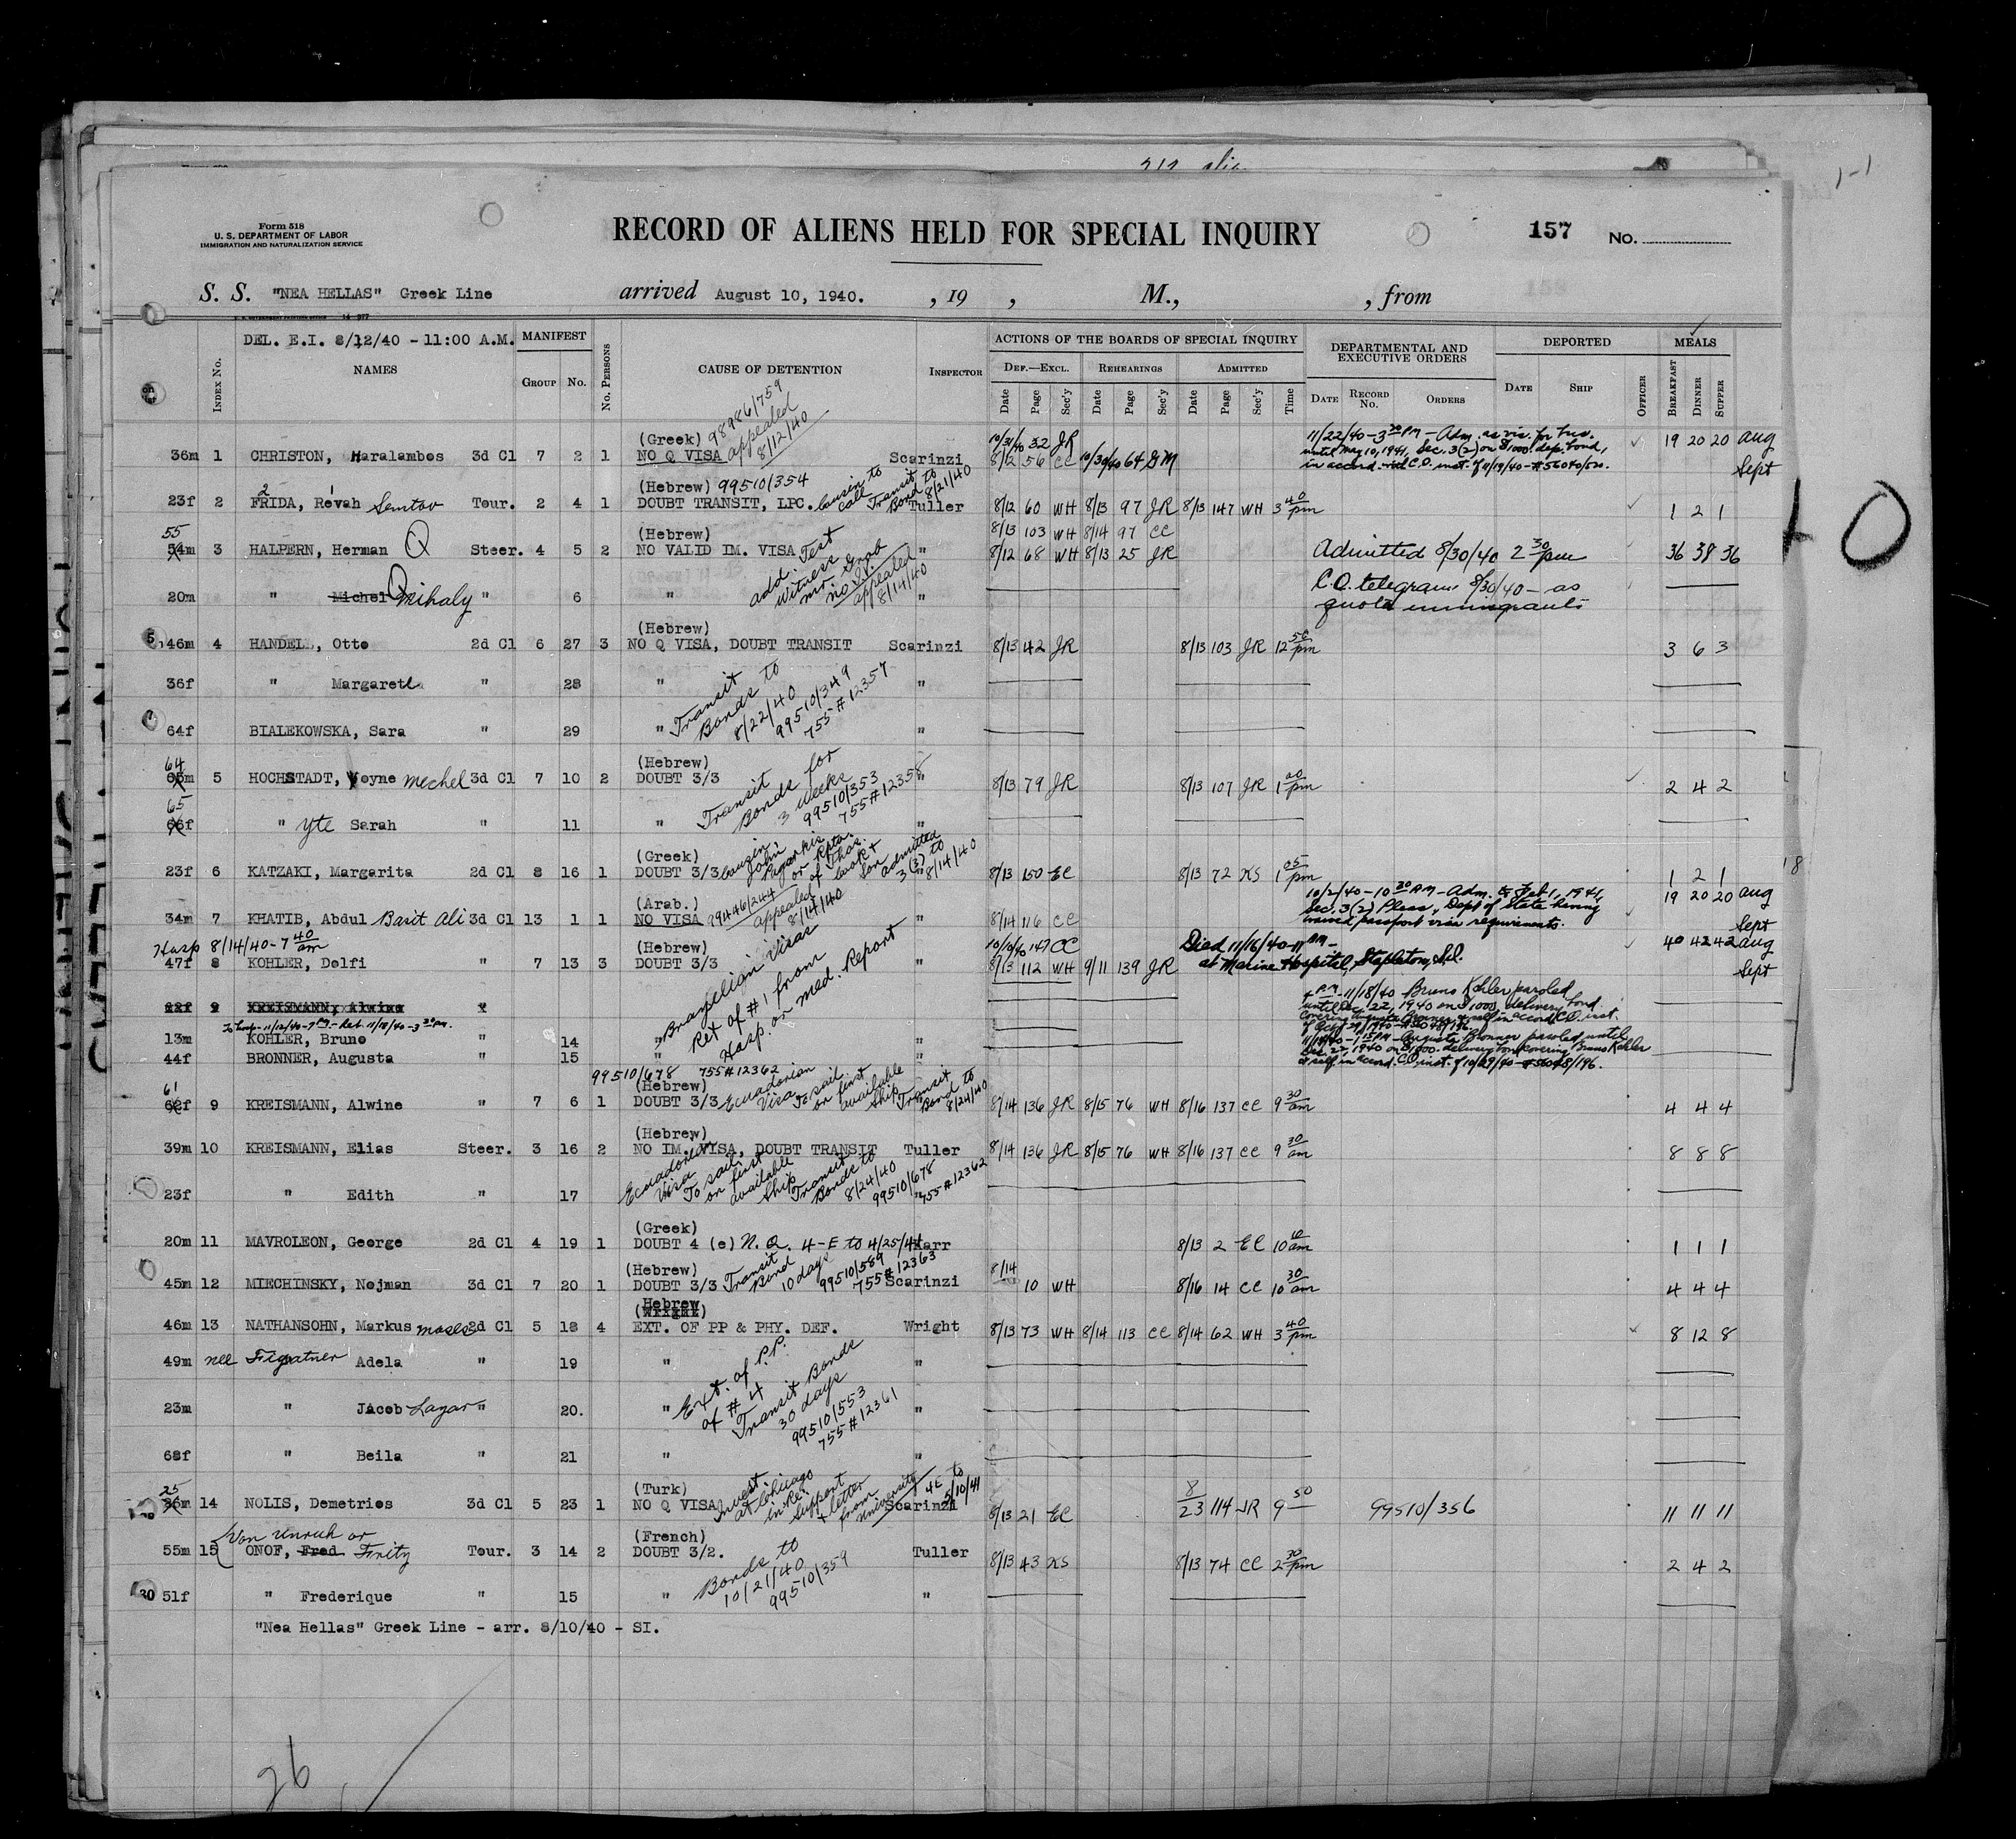 212 alie
1-1
Form 518
U. S. DEPARTMENT OF LABOR
IMMIGRATION AND NATURALIZATION SERVICE
RECORD OF ALIENS HELD FOR SPECIAL INQUIRY
157 No.
S. S. "NEA HELLAS" Greek Line arrived August 10, 1940. , 19 , M., , from
DEL. E.I. 8/12/40 - 11:00 A.M. MANIFEST ACTIONS OF THE BOARDS OF SPECIAL INQUIRY DEPARTMENTAL AND EXECUTIVE ORDERS DEPORTED MEALS
Index No. NAMES Group No. No. Persons CAUSE OF DETENTION Inspector Def.—Excl. Rehearings Admitted Officer
Date Page Sec'y Date Page Sec'y Date Page Sec'y Time Date Record No. Orders Date Ship Breakfast Dinner Supper
(Greek) 98986/759 appealed 8/12/40
10/31/40 32 JR
11/22/40 - 3 30 PM - Adm. as vis. for bus. until May 10, 1941, Sec. 3(2) on $1000. dep. bond, in accord. with C.O. inst. of 11/19/40 - #56040/520.
36m 1 CHRISTON, Haralambos 3d Cl 7 2 1 NO Q VISA Scarinzi 8/12 56 CC 10/30/40 64 GM 19 20 20 Aug Sept
(Hebrew) 99510/354 Cousin to call Transit Bond to 8/21/40
23f 2 FRIDA, Revah Semtov Tour. 2 4 1 DOUBT TRANSIT, LPC. Tuller 8/12 60 WH 8/13 97 JR 8/13 147 WH 3 40 pm 1 2 1
(Hebrew) 8/13 103 WH 8/14 97 CC
55 54m 3 HALPERN, Herman Q Steer. 4 5 2 NO VALID IM. VISA " 8/12 68 WH 8/13 25 JR Admitted 8/30/40 2 30 pm 36 38 36
add. Test witness Mr. Grab no S.V. appealed 8/14/40
20m " Michel Mihaly " 6 " " C.O. telegram 8/30/40 - as quota immigrants
(Hebrew)
46m 4 HANDEL, Otto 2d Cl 6 27 3 NO Q VISA, DOUBT TRANSIT Scarinzi 8/13 42 JR 8/13 103 JR 12 50 pm 3 6 3
36f " Margareta " 28 " "
Transit Bonds to 8/22/40 99510/349 755 #12357
64f BIALEKOWSKA, Sara " 29 " "
(Hebrew)
64 65m 5 HOCHSTADT, Voyne Mechel 3d Cl 7 10 2 DOUBT 3/3 " 8/13 79 JR 8/13 107 JR 1 00 pm 2 4 2
Transit Bonds for 3 weeks 99510/353 755 #12358
65 66f " Yte Sarah " 11 " "
(Greek)
23f 6 KATZAKI, Margarita 2d Cl 8 16 1 DOUBT 3/3 " 8/13 150 EC 8/13 72 KS 1 05 pm 1 2 1
admitted 3(3) to 8/14/40
(Arab.) 99446/244 appealed 8/14/40
10/2/40 - 10 30 AM - Adm. to Feb. 1, 1941, Sec. 3(2) Pleas., Dept of State having waived passport visa requirements.
34m 7 KHATIB, Abdul Basit Ali 3d Cl 13 1 1 NO VISA " 8/14 116 CC 19 20 20 Aug Sept
Hosp 8/14/40 - 7 40 am
(Hebrew) 10/10/40 147 CC
47f 8 KOHLER, Delfi " 7 13 3 DOUBT 3/3 " 8/13 112 WH 9/11 139 JR Died 11/16/40 - 11 PM - at Marine Hospital, Stapleton, S.I. 40 42 42 Aug Sept
Brazilian Visas Ret of #1 from Hosp. or Med. Report
12f 9 KREISMANN, Alwine "
To Hosp - 11/12/40 - 7 PM - Ret. 11/18/40 - 3 30 PM.
13m KOHLER, Bruno " 14 " "
4 PM - 11/18/40 Bruno Kohler paroled until Dec. 22, 1940 on $1000. delivery bond covering Augusta Bronner & self in accord C.O. inst. of Oct 29/1940 - #56048/196.
44f BRONNER, Augusta " 15 " "
11/18/40 - 1 PM - Augusta Bronner paroled until Dec. 22, 1940 on $1000. delivery bond covering Bruno Kohler & self in accord. C.O. inst. of 10/29/40 - #56048/196.
99510/678 755 #12362
(Hebrew) Ecuadorian Visa To sail on first available ship Transit Bond to 8/24/40
61 62f 9 KREISMANN, Alwine " 7 6 1 DOUBT 3/3 8/14 136 JR 8/15 76 WH 8/16 137 CC 9 30 am 4 4 4
(Hebrew)
39m 10 KREISMANN, Elias Steer. 3 16 2 NO IM. VISA, DOUBT TRANSIT Tuller 8/14 136 JR 8/15 76 WH 8/16 137 CC 9 30 am 8 8 8
Ecuadorian Visa To sail on first available ship Transit Bonds to 8/24/40 99510/678 755 #12362
23f " Edith " 17 "
(Greek)
20m 11 MAVROLEON, George 2d Cl 4 19 1 DOUBT 4 (e) N.Q. 4-E to 4/25/41 Karr 8/13 2 EC 10 10 am 1 1 1
(Hebrew) Transit Bond 10 days 99510/589 755 #12363
45m 12 MIECHINSKY, Nojman 3d Cl 7 20 1 DOUBT 3/3 Scarinzi 8/14 10 WH 8/16 14 CC 10 30 am 4 4 4
Hebrew
46m 13 NATHANSOHN, Markus Moses 2d Cl 5 18 4 EXT. OF PP & PHY. DEF. Wright 8/13 73 WH 8/14 113 CC 8/14 62 WH 3 40 pm 8 12 8
49m nee Figatner Adela " 19 " "
Ext. of P.P. of #4 Transit Bonds 30 days 99510/553 755 #12361
23m " Jacob Lazar " 20. " "
68f " Beila " 21 " "
(Turk) Invest. at Chicago in re: support & letter from University 4E to 5/10/41
25 26m 14 NOLIS, Demetrios 3d Cl 5 23 1 NO Q VISA Scarinzi 8/13 21 EC 8/23 114 JR 9 50 99510/356 11 11 11
Von Unruh or (French)
55m 15 ONOF, Fred Finity Tour. 3 14 2 DOUBT 3/2. Tuller 8/13 43 KS 8/13 74 CC 2 30 pm 2 4 2
Bonds to 10/21/40 99510/359
30 51f " Frederique " 15 " "
"Nea Hellas" Greek Line - arr. 8/10/40 - SI.
26